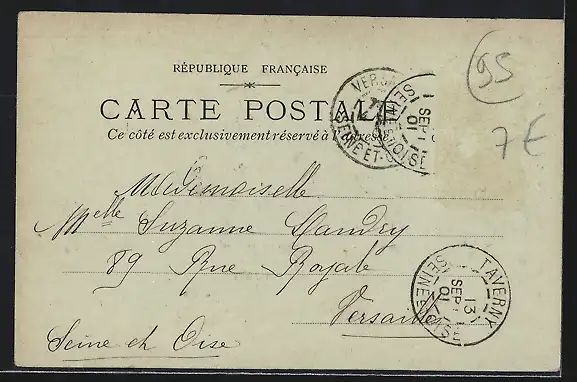 RÉPUBLIQUE FRANÇAISE
CARTE POSTALE
Ce côté est exclusivement réservé à l'adresse
95
7€
VERSAILLES
SEINE-ET-OISE
SEPT
01
Mademoiselle
Melle Suzanne Landry
89 Rue Royale
Versailles
Seine et Oise
TAVERNY
13
SEPT
01
SEINE-ET-OISE